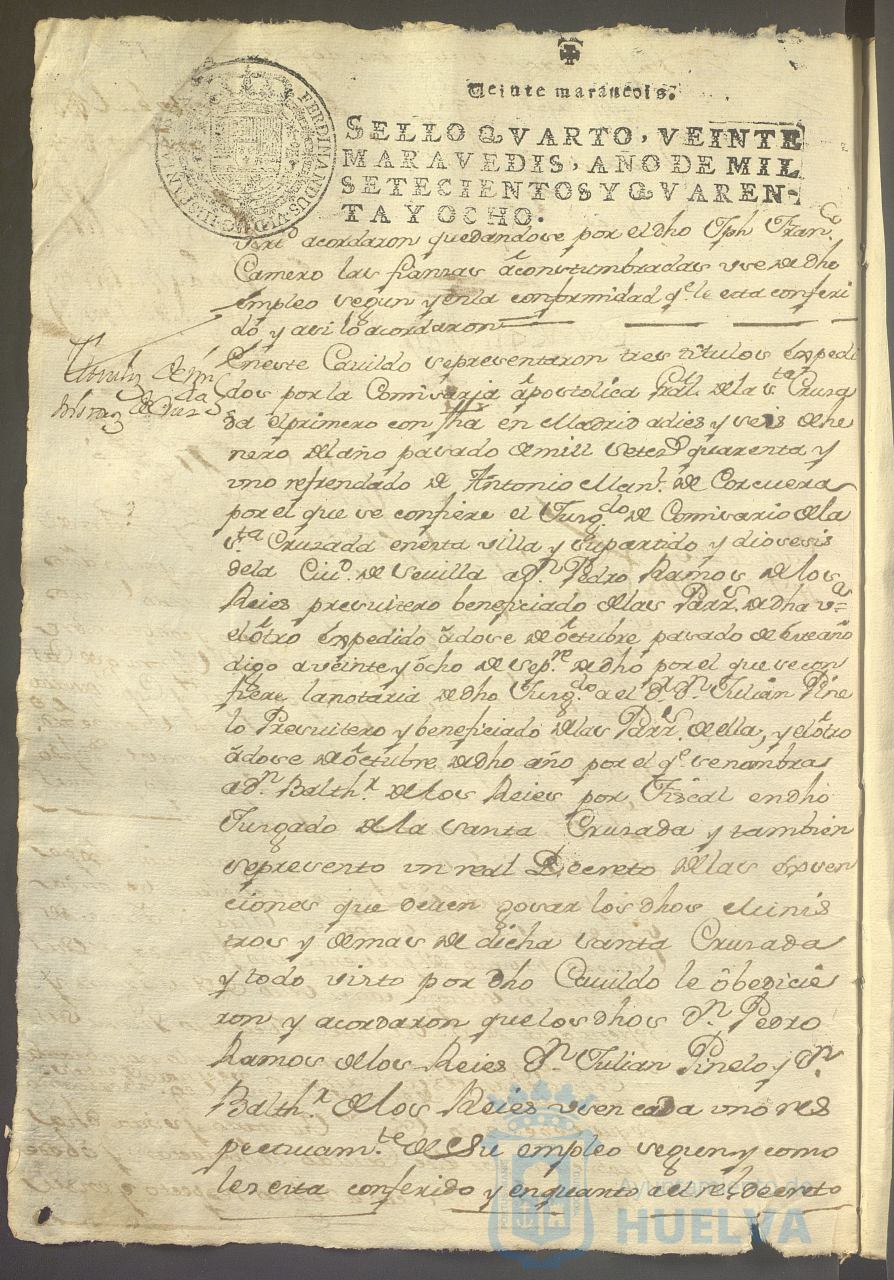 Veinte marauedis.
SELLO QVARTO, VEINTE
MARAVEDIS, AÑO DE MIL
SETECIENTOS Y QVAREN-
TA Y OCHO.
FERDINANDUS VI D G HISPANIAR
acordaron quedandose por el dho Jph Franco
Camero las fianzas acostumbradas use de dho
empleo segun y en la conformidad qe le esta conferi
do y asi lo acordaron
Titulos de
En este Cavildo se presentaron tres titulos expedi
dos por la Comisaria apostolica Gral de la Sta Cruza
da el primero con fha en Madrid a dies y seis de he
nero del año pasado de mill setesos quarenta y
uno refrendado de Antonio Manl. de Corcuera
por el que se confiere el Juzgdo de Comisario de la
Sta Cruzada en esta villa y su partido y diosesis
de la Ciud. de Sevilla a Dn Pedro Ramos de los
Reies presvitero beneficiado de las Parrs. de dha va
el otro expedido a dose de octubre pasado de este año
digo a veinte y ocho de Sepre de dho por el que se con
fiere la notaria de dho Juzgdo a el Dr Dn Julian Pine
lo Presvitero y beneficiado de las Parrs. de ella, y el otro
a dose de octubre de dho año por el qe se nombra
a Dn Balthr de los Reies por Fiscal en dho
Juzgado de la Santa Cruzada y tambien
se presento un real Decreto de las exsen
ciones que deven gosar los dhos Minis
tros y demas de dicha santa Cruzada
y todo visto por dho Cavildo le obedicie
ron y acordaron que los dhos Dn Pedro
Ramos de los Reies Dn Julian Pinelo y Dn
Balthr de los Reies usen cada uno res
pectuamte de su empleo segun y como
les esta conferido y en quanto a el rl decreto
Ayuntamiento de
HUELVA